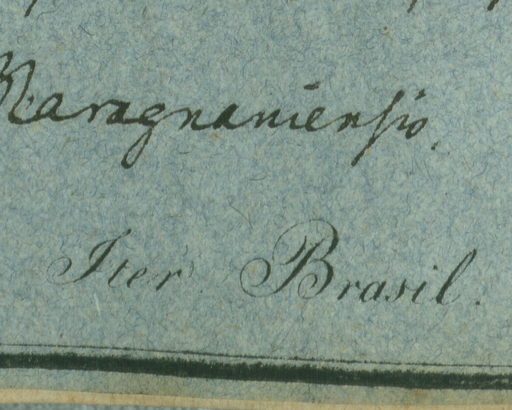 Maragnaniensis.
Iter Brasil.